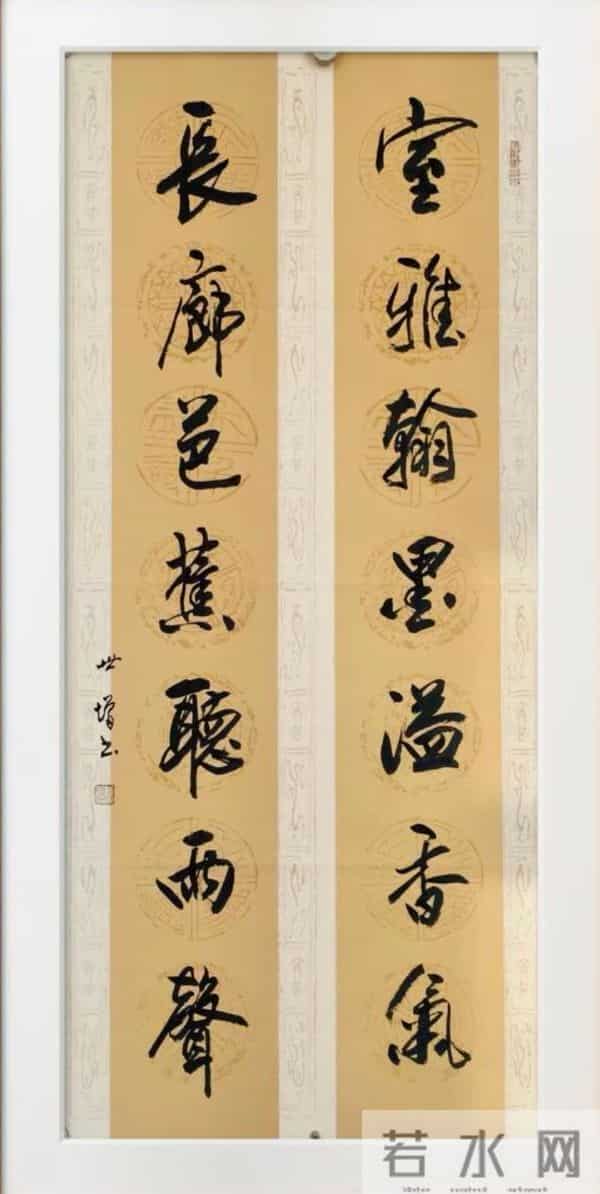 室雅翰墨溢香氣
長廊芭蕉聽雨聲
世增书
若水网